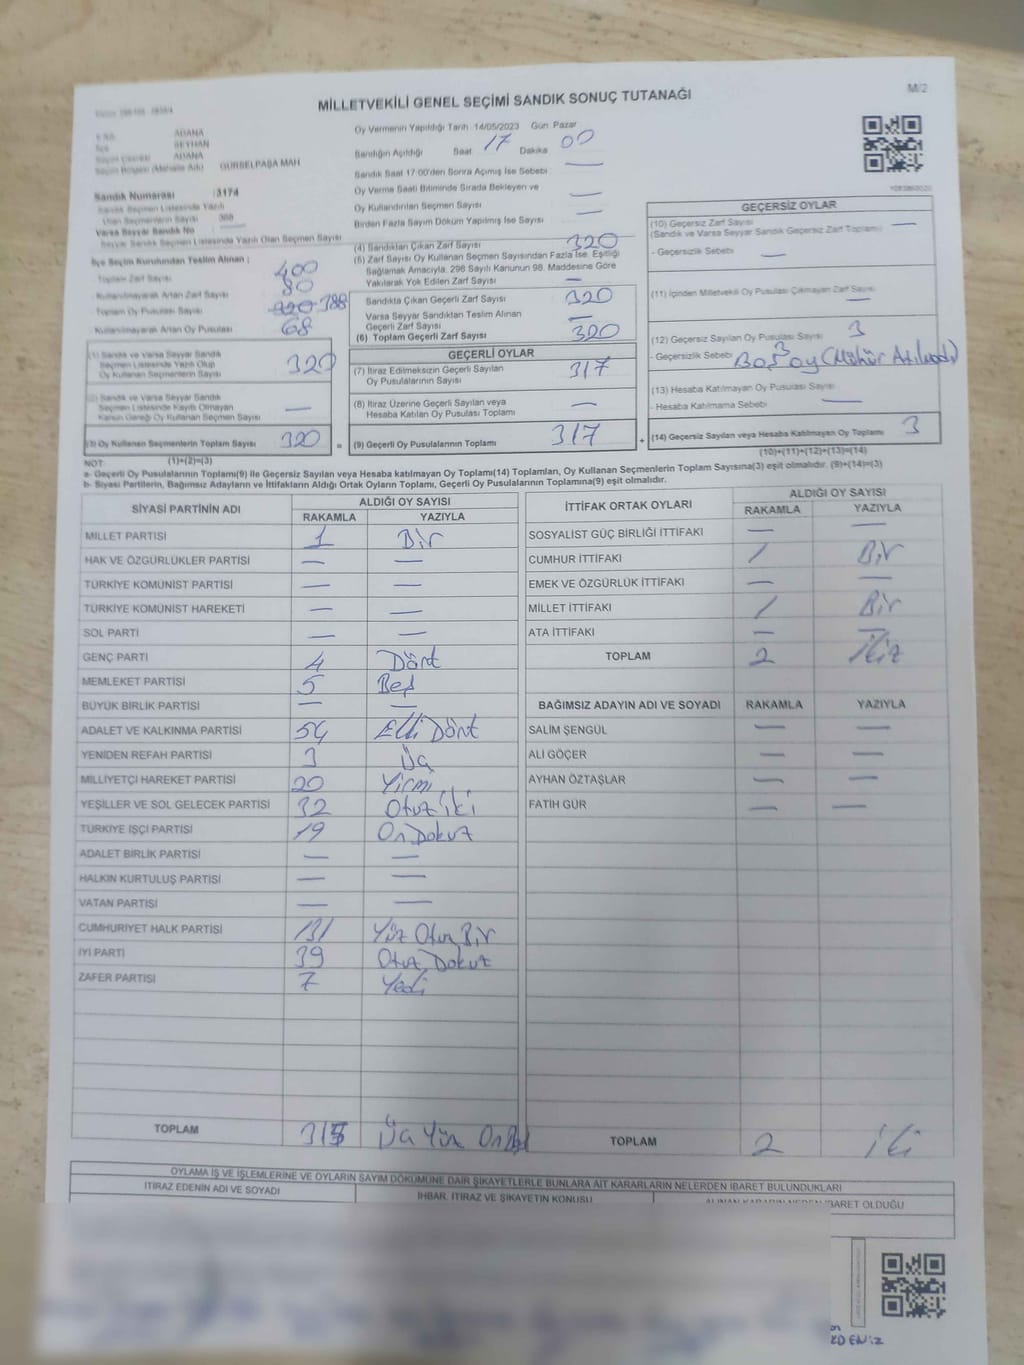 M/2
MİLLETVEKİLİ GENEL SEÇİMİ SANDIK SONUÇ TUTANAĞI
ADANA
SEYHAN
ADANA
GÜRSELPAŞA MAH
Sandık Numarası :3174
Sandık Seçmen Listesinde Yazılı
Olan Seçmenlerin Sayısı 388
Varsa Seyyar Sandık No
Seyyar Sandık Seçmen Listesinde Yazılı Olan Seçmen Sayısı
Oy Vermenin Yapıldığı Tarih 14/05/2023 Gün Pazar
Sandığın Açıldığı Saat 17 Dakika 00
Sandık Saat 17:00'den Sonra Açımış İse Sebebi —
Oy Verme Saati Bitiminde Sırada Bekleyen ve
Oy Kullandırılan Seçmen Sayısı —
Birden Fazla Sayım Döküm Yapılmış İse Sayısı —
İlçe Seçim Kurulundan Teslim Alınan ;
Toplam Zarf Sayısı 400
Kullanılmayarak Artan Zarf Sayısı 80
Toplam Oy Pusulası Sayısı 320 388
Kullanılmayarak Artan Oy Pusulası 68
(1) Sandık ve Varsa Seyyar Sandık
Seçmen Listesinde Yazılı Olup
Oy Kullanan Seçmenlerin Sayısı 320
(2) Sandık ve Varsa Seyyar Sandık
Seçmen Listesinde Kayıtlı Olmayan
Kanun Gereği Oy Kullanan Seçmen Sayısı —
(3) Oy Kullanan Seçmenlerin Toplam Sayısı 320 =
(1)+(2)=(3)
(4) Sandıktan Çıkan Zarf Sayısı 320
(5) Zarf Sayısı Oy Kullanan Seçmen Sayısından Fazla İse, Eşitliği
Sağlamak Amacıyla, 298 Sayılı Kanunun 98. Maddesine Göre
Yakılarak Yok Edilen Zarf Sayısı —
Sandıkta Çıkan Geçerli Zarf Sayısı 320
Varsa Seyyar Sandıktan Teslim Alınan
Geçerli Zarf Sayısı —
(6) Toplam Geçerli Zarf Sayısı 320
GEÇERLİ OYLAR
(7) İtiraz Edilmeksizin Geçerli Sayılan
Oy Pusulalarının Sayısı 317
(8) İtiraz Üzerine Geçerli Sayılan veya
Hesaba Katılan Oy Pusulası Toplamı —
(9) Geçerli Oy Pusulalarının Toplamı 317 +
GEÇERSİZ OYLAR
(10) Geçersiz Zarf Sayısı
(Sandık ve Varsa Seyyar Sandık Geçersiz Zarf Toplamı) —
- Geçersizlik Sebebi —
(11) İçinden Milletvekili Oy Pusulası Çıkmayan Zarf Sayısı —
(12) Geçersiz Sayılan Oy Pusulası Sayısı 3
- Geçersizlik Sebebi 3 Boş oy (Mühür Atılmadı)
(13) Hesaba Katılmayan Oy Pusulası Sayısı
- Hesaba Katılmama Sebebi —
(14) Geçersiz Sayılan veya Hesaba Katılmayan Oy Toplamı 3
(10)+(11)+(12)+(13)=(14)
NOT:
a- Geçerli Oy Pusulalarının Toplamı(9) ile Geçersiz Sayılan veya Hesaba katılmayan Oy Toplamı(14) Toplamları, Oy Kullanan Seçmenlerin Toplam Sayısına(3) eşit olmalıdır. (9)+(14)=(3)
b- Siyasi Partilerin, Bağımsız Adayların ve İttifakların Aldığı Ortak Oyların Toplamı, Geçerli Oy Pusulalarının Toplamına(9) eşit olmalıdır.
SİYASİ PARTİNİN ADI ALDIĞI OY SAYISI
RAKAMLA YAZIYLA
MİLLET PARTİSİ 1 Bir
HAK VE ÖZGÜRLÜKLER PARTİSİ — —
TÜRKİYE KOMÜNİST PARTİSİ — —
TÜRKİYE KOMÜNİST HAREKETİ — —
SOL PARTİ — —
GENÇ PARTİ 4 Dört
MEMLEKET PARTİSİ 5 Beş
BÜYÜK BİRLİK PARTİSİ — —
ADALET VE KALKINMA PARTİSİ 54 Elli Dört
YENİDEN REFAH PARTİSİ 3 Üç
MİLLİYETÇİ HAREKET PARTİSİ 20 Yirmi
YEŞİLLER VE SOL GELECEK PARTİSİ 32 Otuz İki
TÜRKİYE İŞÇİ PARTİSİ 19 On Dokuz
ADALET BİRLİK PARTİSİ — —
HALKIN KURTULUŞ PARTİSİ — —
VATAN PARTİSİ — —
CUMHURİYET HALK PARTİSİ 131 Yüz Otuz Bir
İYİ PARTİ 39 Otuz Dokuz
ZAFER PARTİSİ 7 Yedi
TOPLAM 315 Üç Yüz On Beş
İTTİFAK ORTAK OYLARI ALDIĞI OY SAYISI
RAKAMLA YAZIYLA
SOSYALİST GÜÇ BİRLİĞİ İTTİFAKI — —
CUMHUR İTTİFAKI 1 Bir
EMEK VE ÖZGÜRLÜK İTTİFAKI — —
MİLLET İTTİFAKI 1 Bir
ATA İTTİFAKI — —
TOPLAM 2 İki
BAĞIMSIZ ADAYIN ADI VE SOYADI RAKAMLA YAZIYLA
SALİM ŞENGÜL — —
ALİ GÖÇER — —
AYHAN ÖZTAŞLAR — —
FATİH GÜR — —
TOPLAM 2 İki
OYLAMA İŞ VE İŞLEMLERİNE VE OYLARIN SAYIM DÖKÜMÜNE DAİR ŞİKAYETLERLE BUNLARA AİT KARARLARIN NELERDEN İBARET BULUNDUKLARI
İTİRAZ EDENİN ADI VE SOYADI
İHBAR, İTİRAZ VE ŞİKAYETİN KONUSU
ALINAN KARARIN NEDEN İBARET OLDUĞU